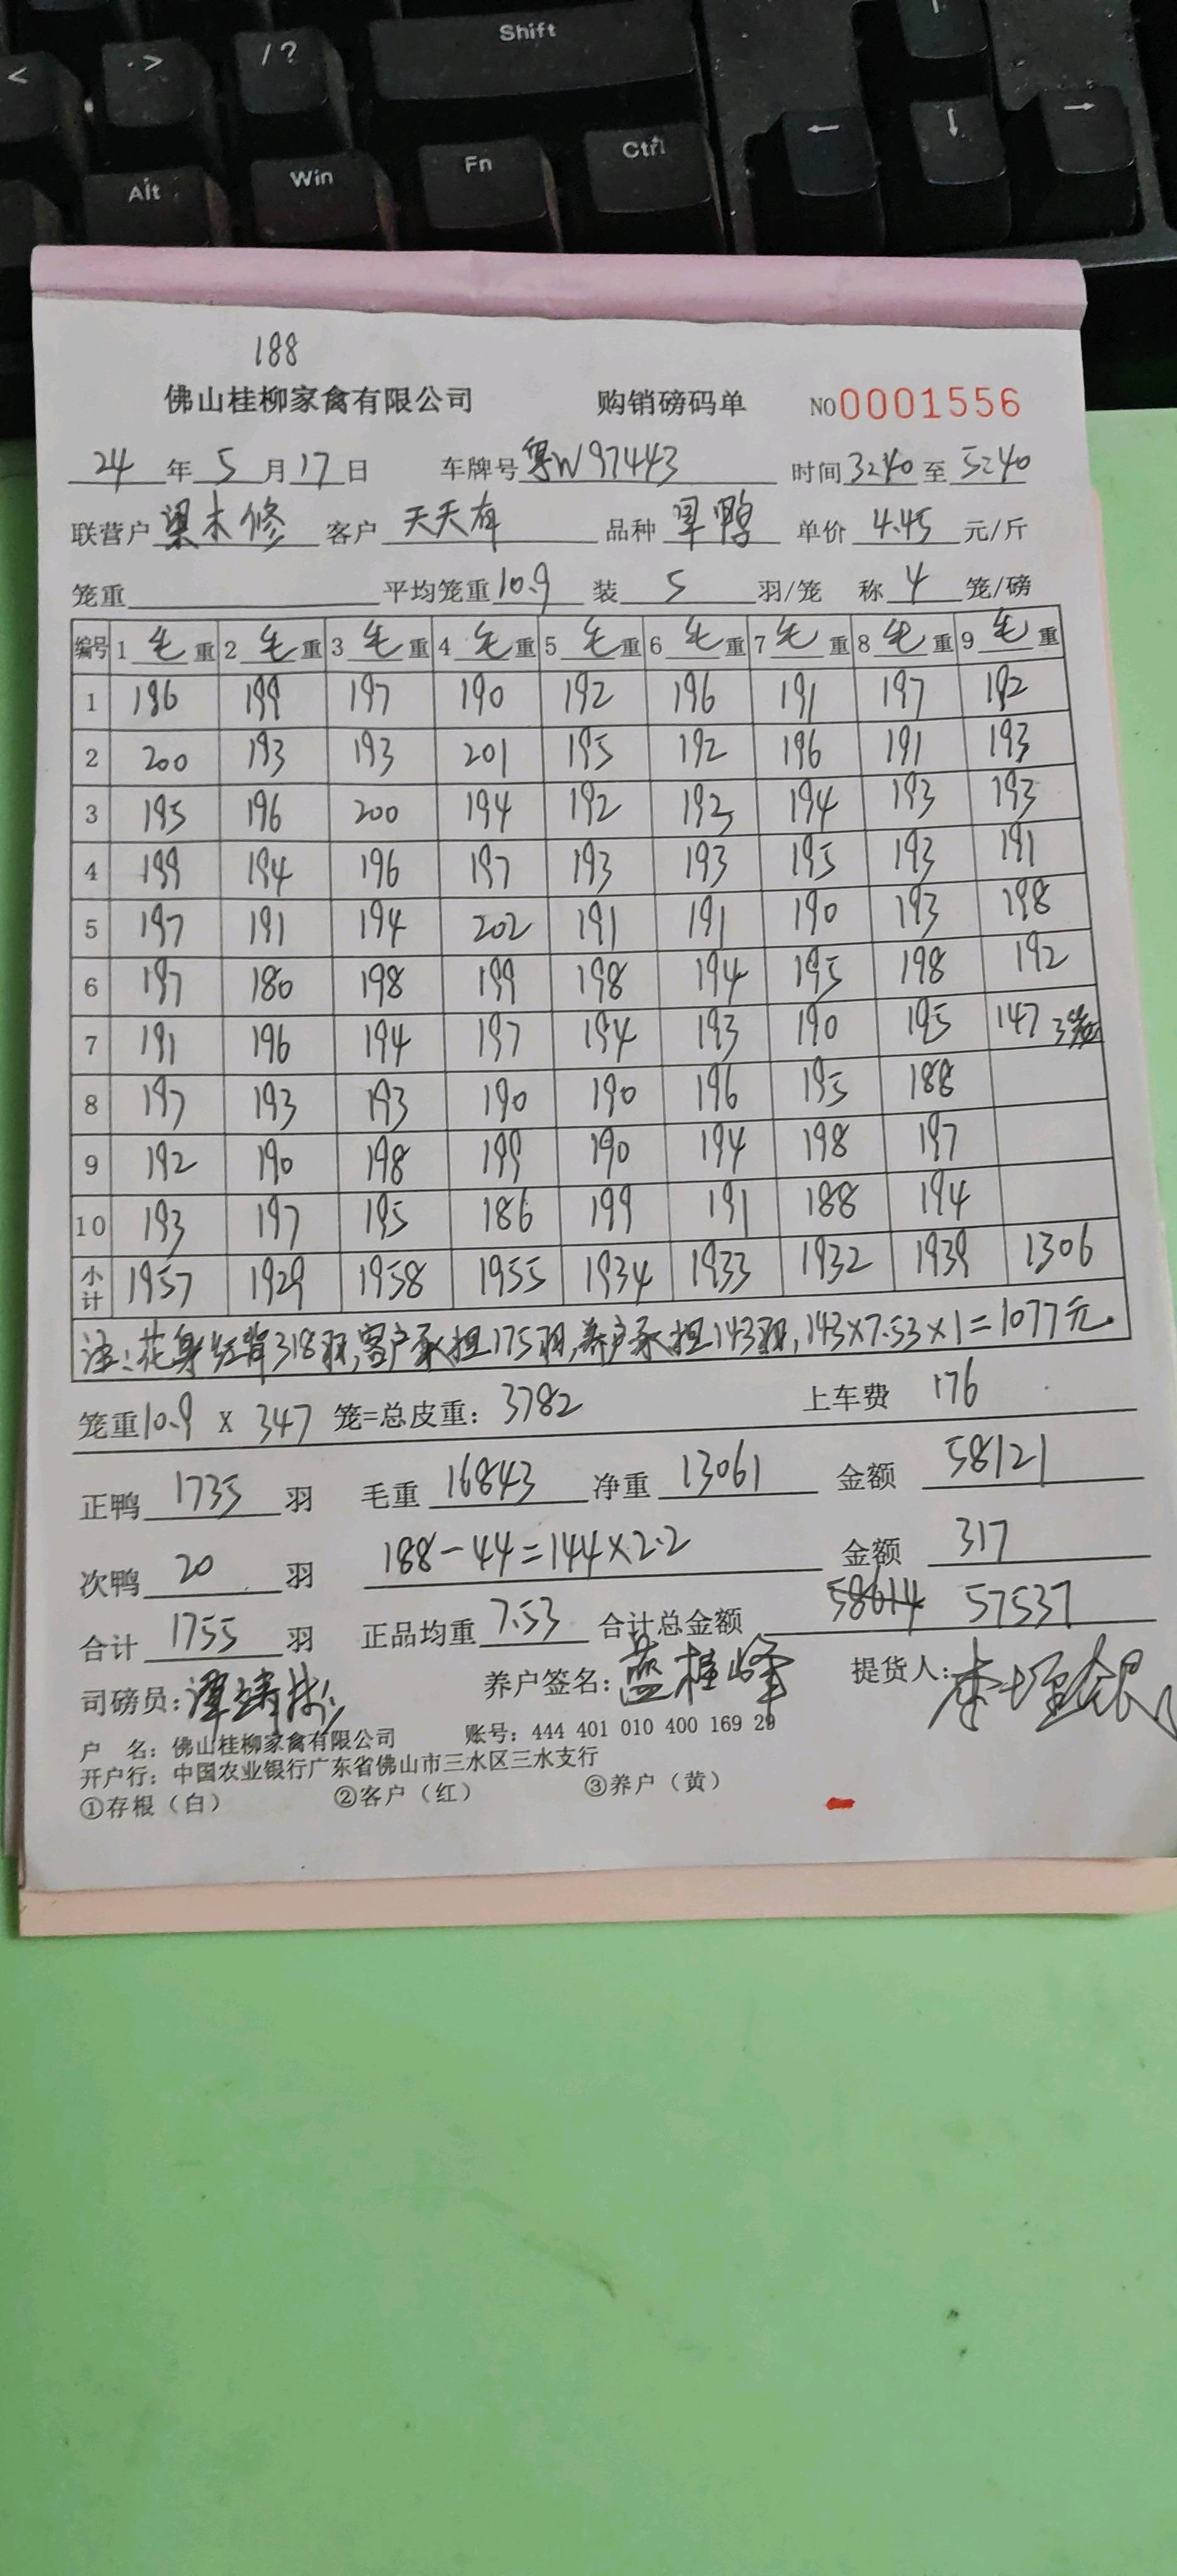 Shift
< . > / ?
Alt Win Fn Ctrl ← ↓ →
188
佛山桂柳家禽有限公司 购销磅码单 NO 0001556
24 年 5 月 17 日 车牌号 粤W97443 时间 3:40 至 5:40
联营户 梁木修 客户 天天有 品种 旱鸭 单价 4.45 元/斤
笼重 平均笼重 10.9 装 5 羽/笼 称 4 笼/磅
编号 1 毛 重 2 毛 重 3 毛 重 4 毛 重 5 毛 重 6 毛 重 7 毛 重 8 毛 重 9 毛 重
1 186 199 197 190 192 196 191 197 192
2 200 193 193 201 195 192 196 191 193
3 195 196 200 194 192 193 194 193 193
4 199 194 196 197 193 193 195 193 191
5 197 191 194 202 191 191 190 193 198
6 197 180 198 199 198 194 195 198 192
7 191 196 194 197 194 193 190 195 147 3笼
8 197 193 193 190 190 196 195 188
9 192 190 198 199 190 194 198 197
10 193 197 195 186 199 191 188 194
小计 1957 1929 1958 1955 1934 1933 1932 1939 1306
注:花身红背318羽,客户承担175羽,养户承担143羽,143×7.53×1=1077元.
笼重 10.9 X 347 笼=总皮重: 3782 上车费 176
正鸭 1735 羽 毛重 16843 净重 13061 金额 58121
次鸭 20 羽 188-44=144×2.2 金额 317
合计 1755 羽 正品均重 7.53 合计总金额 58614 57537
司磅员: 养户签名: 蓝桂峰 提货人:
户 名: 佛山桂柳家禽有限公司 账号: 444 401 010 400 169 29
开户行: 中国农业银行广东省佛山市三水区三水支行
①存根(白) ②客户(红) ③养户(黄)